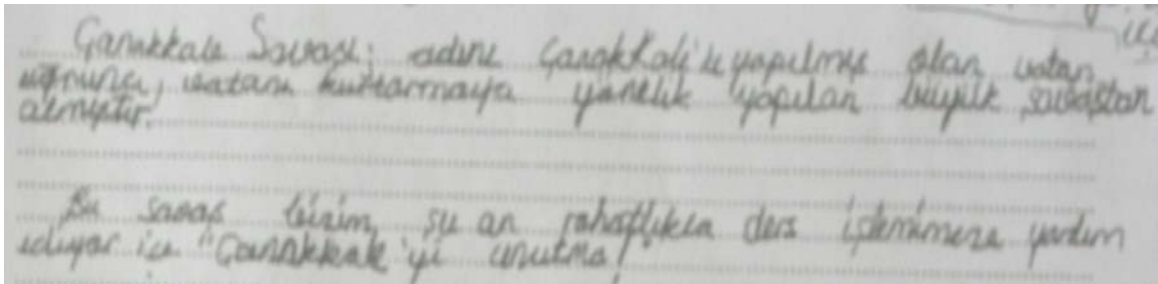 Çanakkale Savaşı; adını Çanakkale'de yapılmış olan vatan
uğruna, vatanı kurtarmaya yönelik yapılan büyük savaştan
almıştır.
Bu savaş bizim şu an rahatlıkla ders işlememize yardım
ediyor ise "Çanakkale'yi unutma!